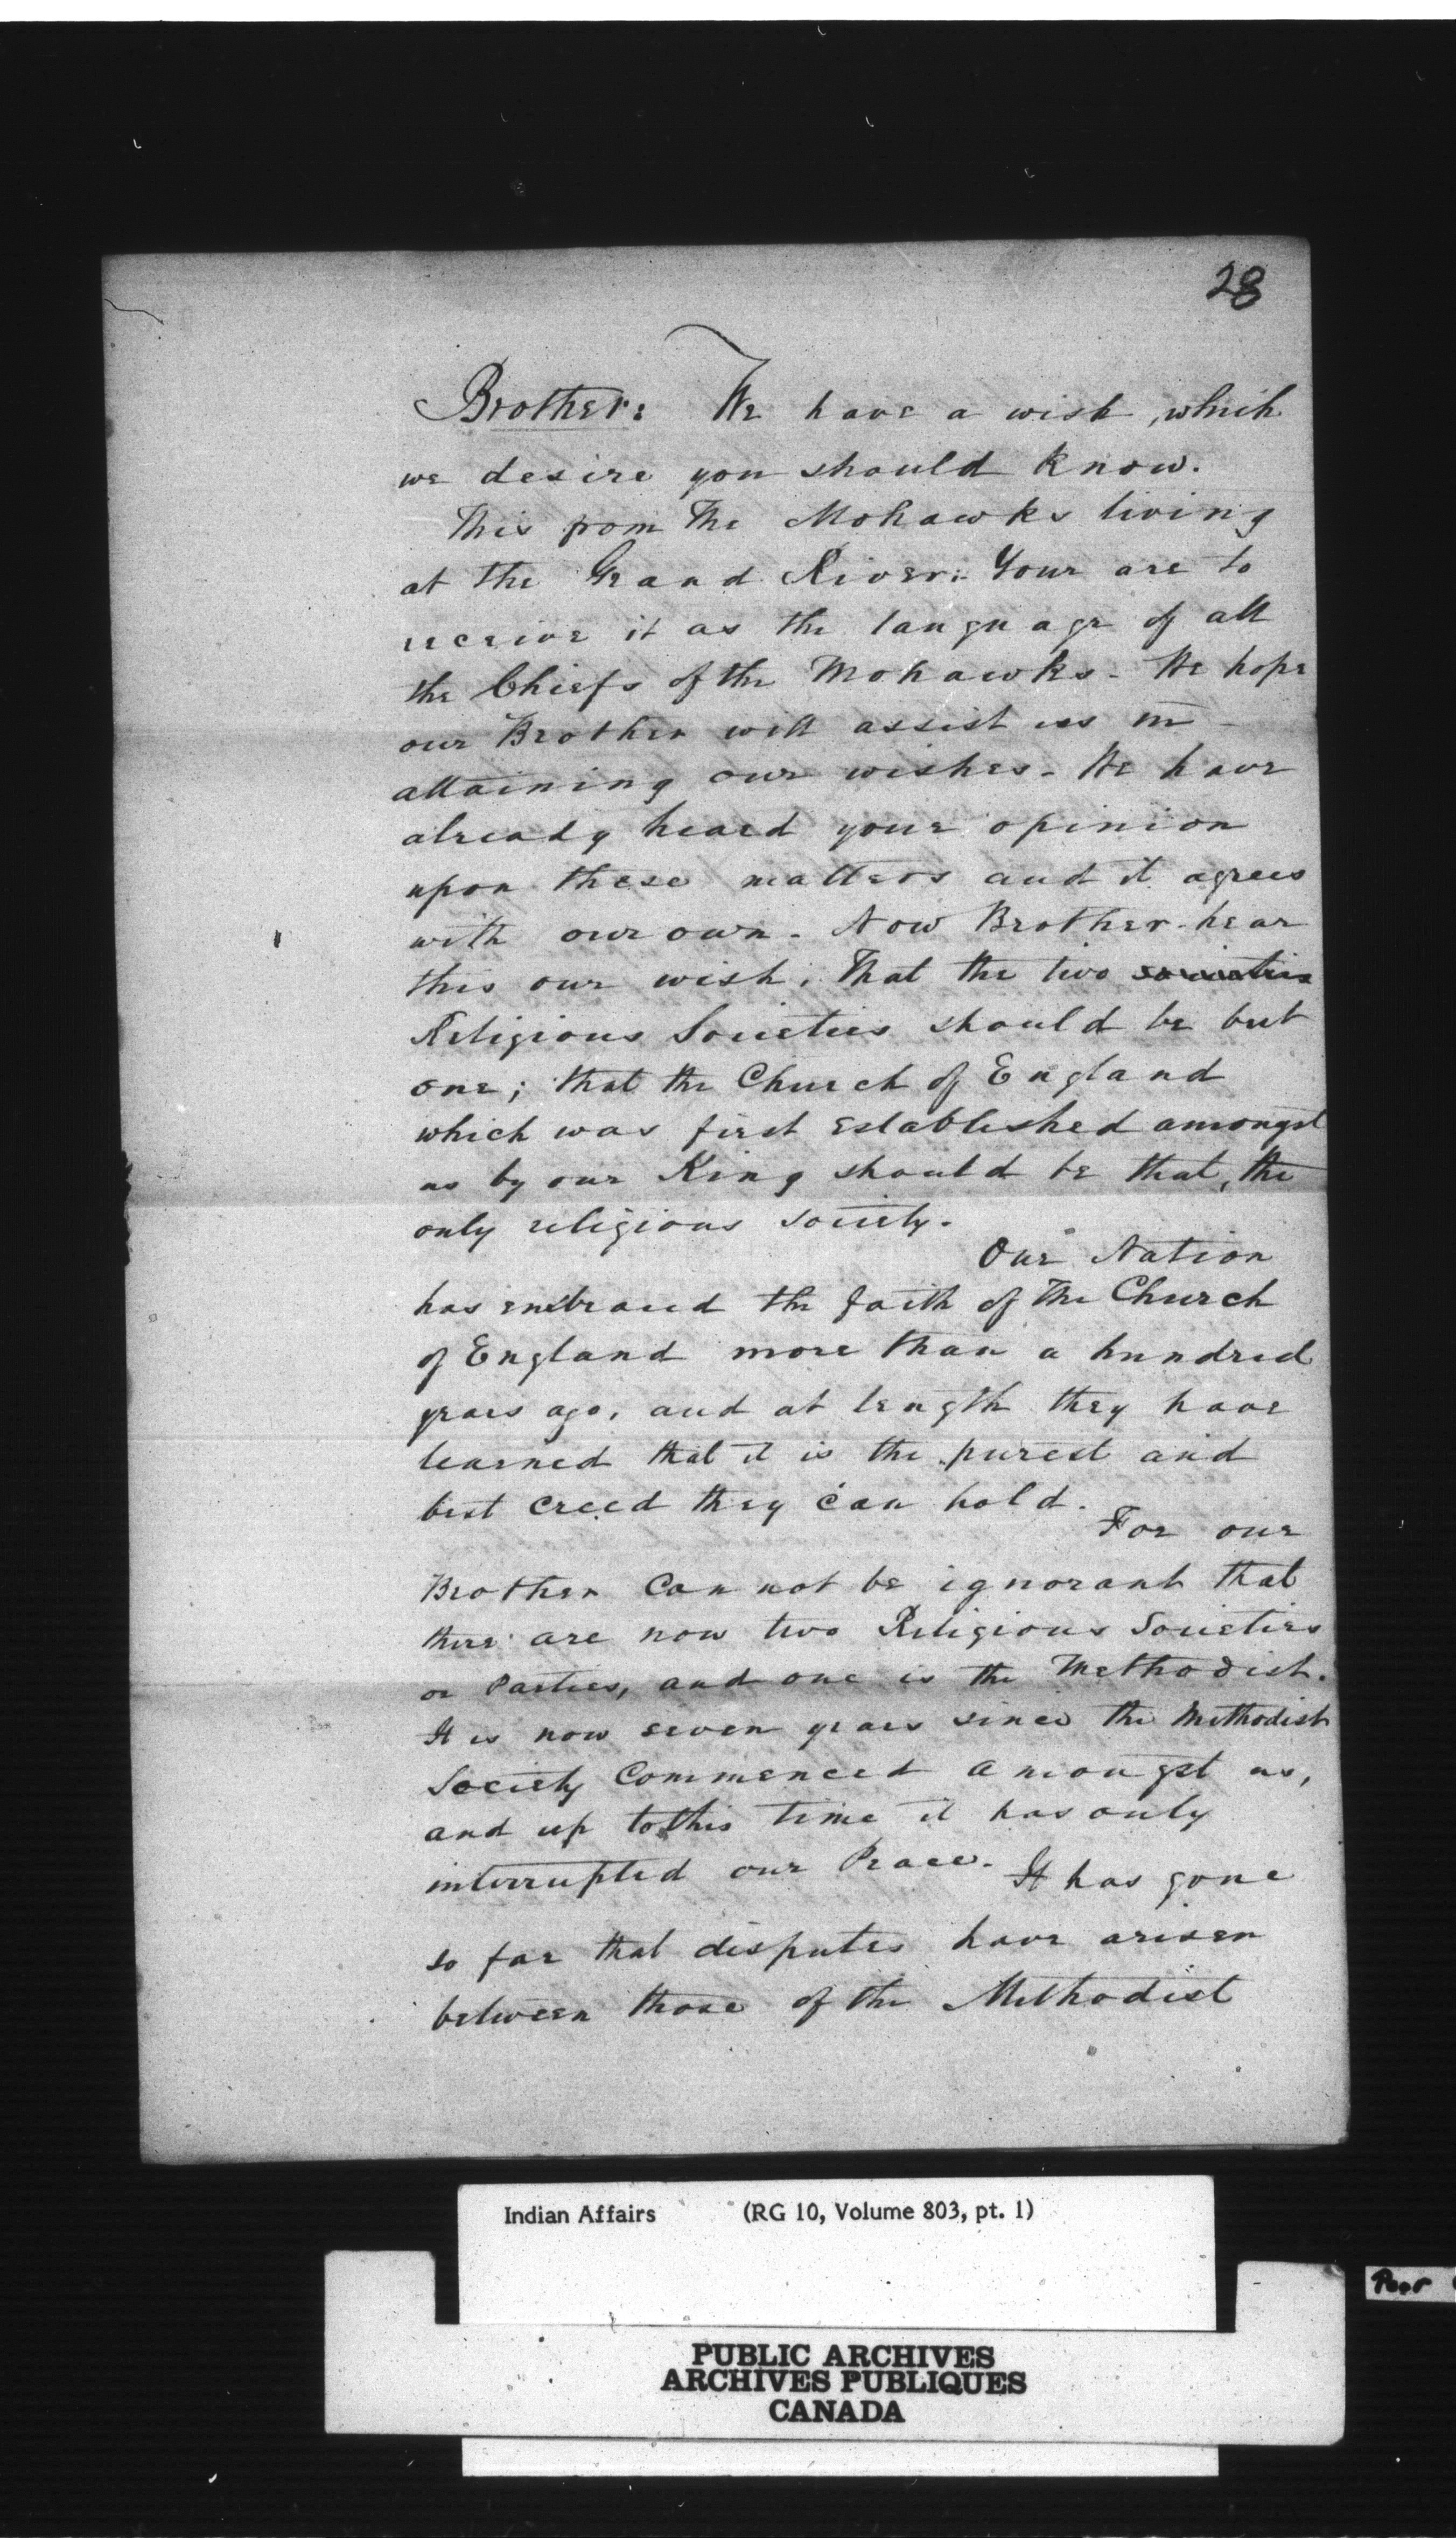 28
Brother: We have a wish, which
we desire you should know.
This from the Mohawks living
at the Grand River: Your are to
receive it as the language of all
the Chiefs of the Mohawks - We hope
our Brother will assist us in -
attaining our wishes - We have
already heard your opinion
upon these matters and it agrees
with our own - Now Brother hear
this our wish, That the two societies
Religious Societies should be but
one; that the Church of England
which was first established amongst
us by our King should be that, the
only religious society.
Our Nation
has embraced the faith of the Church
of England more than a hundred
years ago, and at length they have
learned that it is the purest and
best creed they can hold.
For our
Brother Can not be ignorant that
there are now two Religious Societies
or Parties, and one is the Methodist.
It is now seven years since the Methodist
Society Commenced Amongst us,
and up to this time it has only
interrupted our Peace. It has gone
so far that disputes have arisen
between those of the Methodist
Indian Affairs (RG 10, Volume 803, pt. 1)
Poor
PUBLIC ARCHIVES
ARCHIVES PUBLIQUES
CANADA